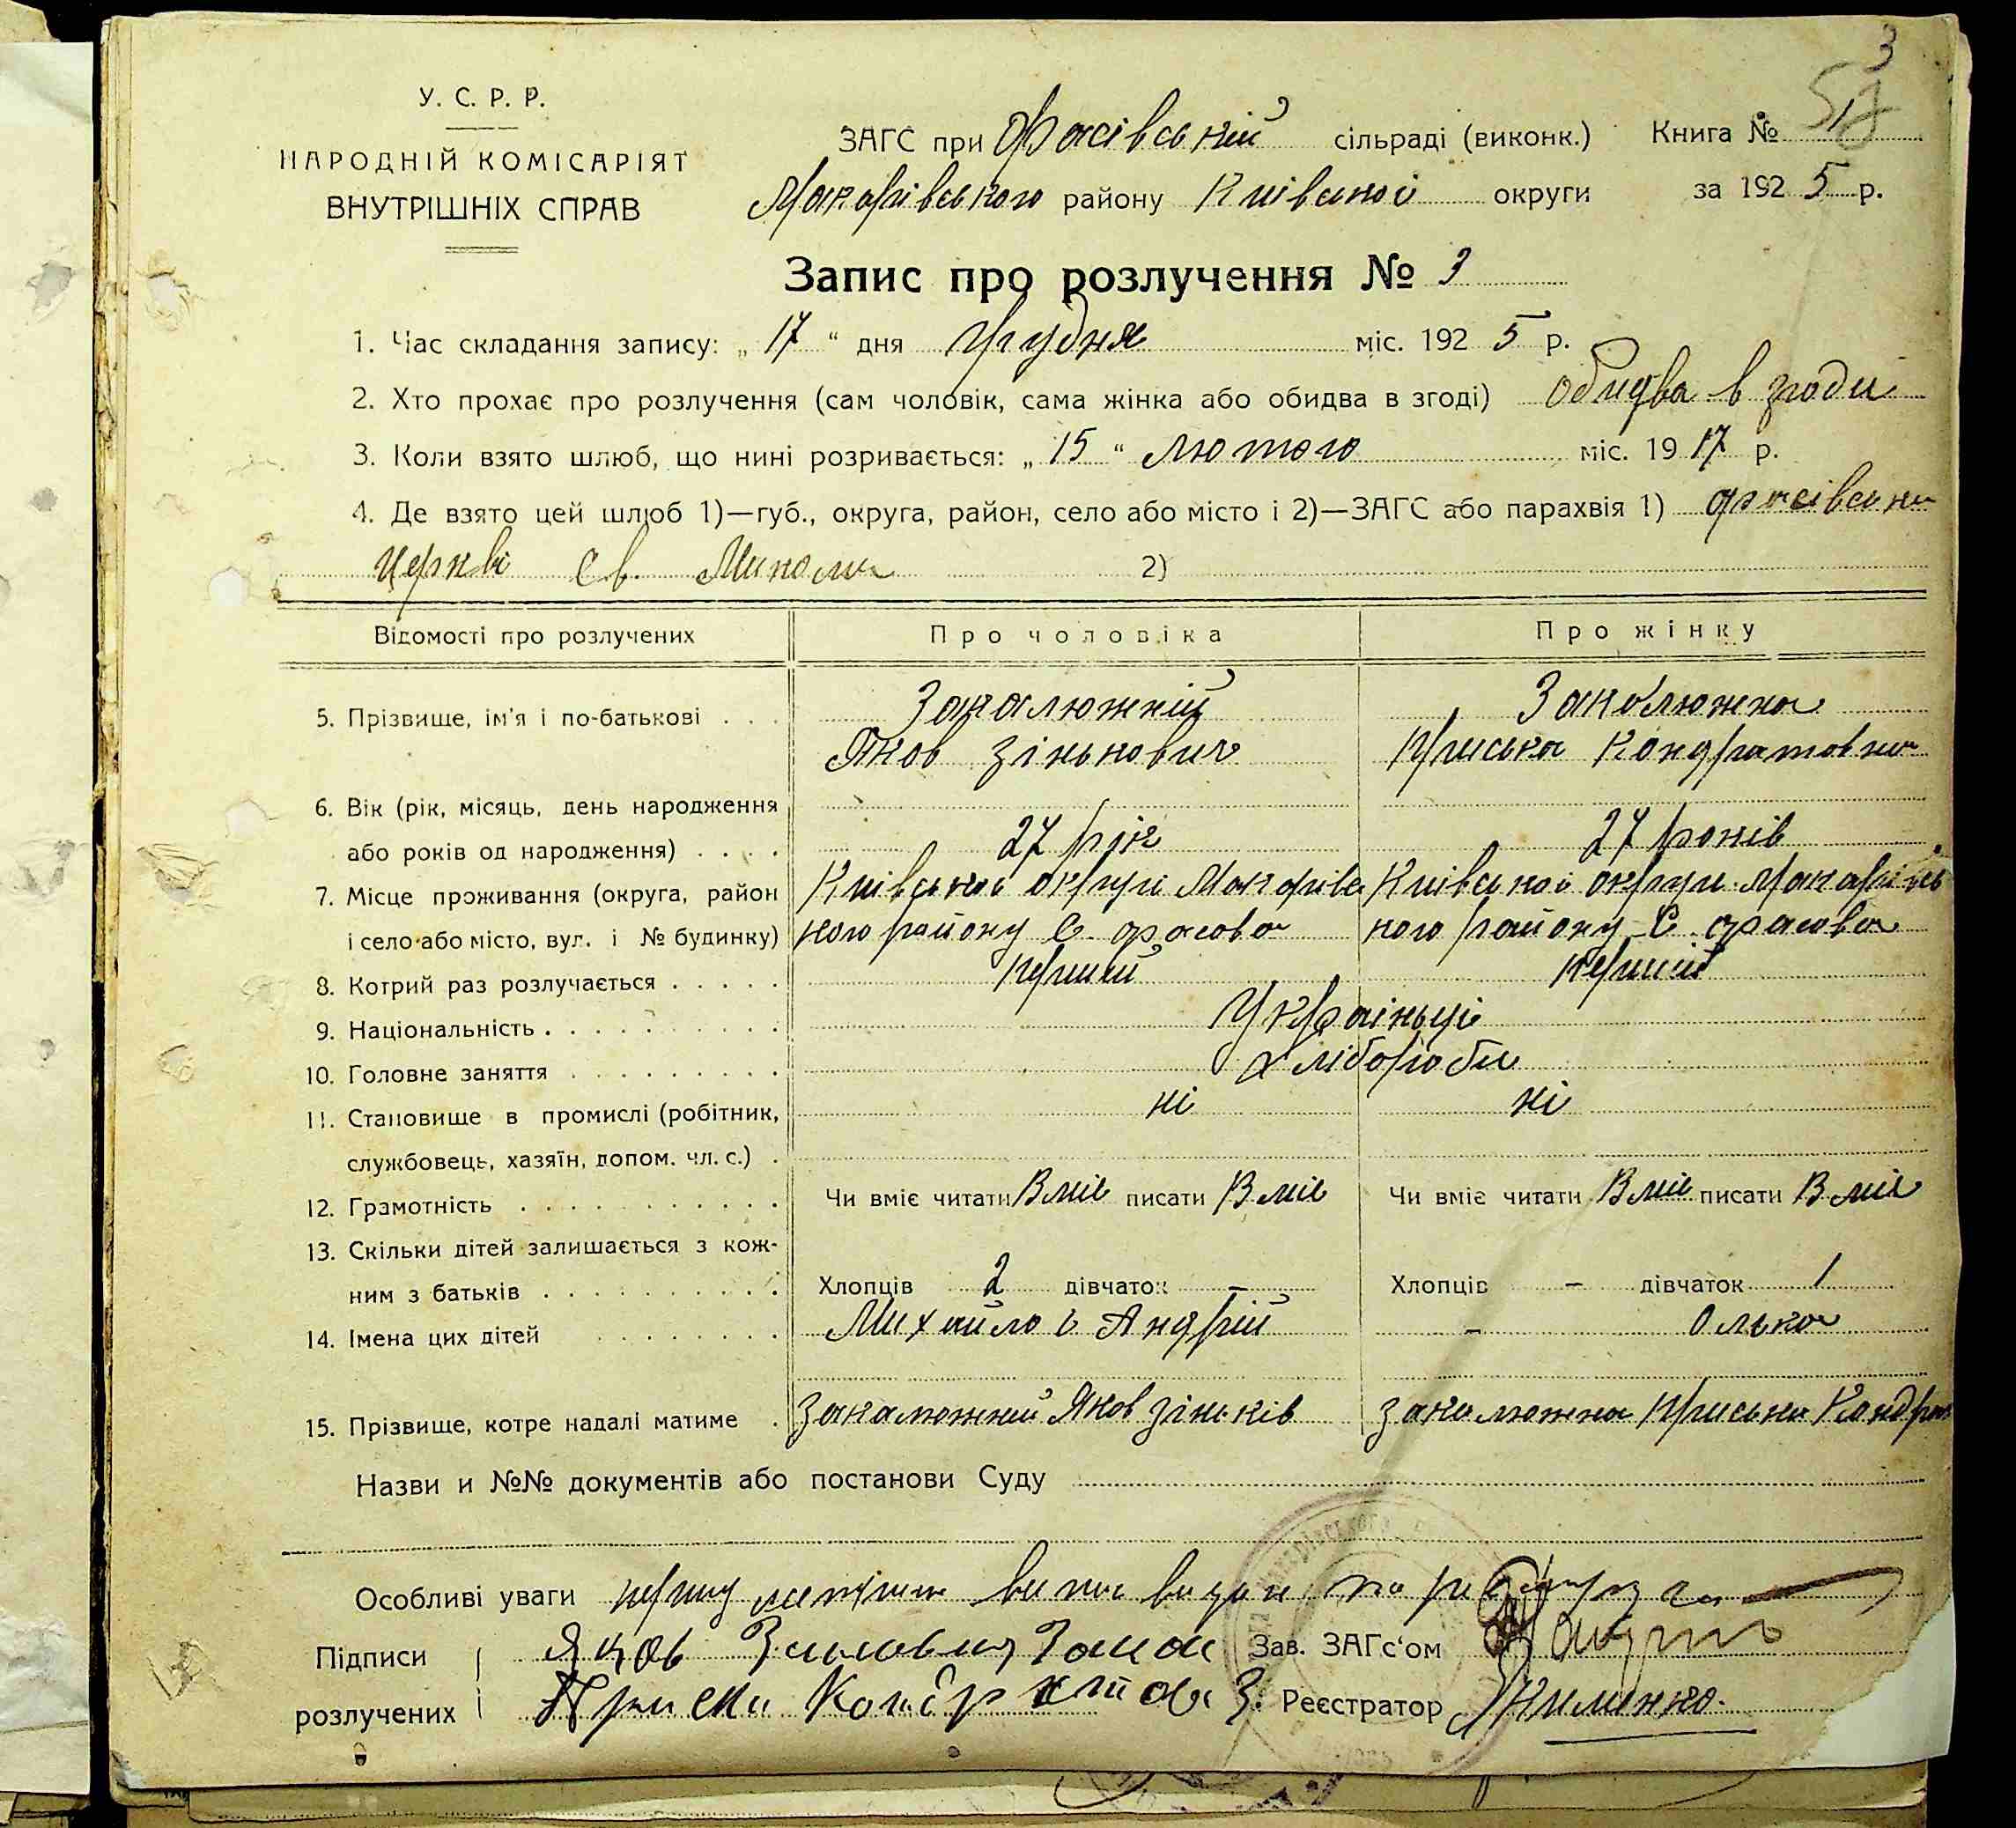 3
У. С. Р. Р.
НАРОДНІЙ КОМІСАРІЯТ
ВНУТРІШНІХ СПРАВ
ЗАГС при Фасівській сільраді (виконк.) Книга № 1
Макарівського району Київської округи за 1925 р.
Запис про розлучення № 3
1. Час складання запису: „17“ дня Грудня міс. 1925 р.
2. Хто прохає про розлучення (сам чоловік, сама жінка або обидва в згоді) обидва в згоди
3. Коли взято шлюб, що нині розривається: „15“ лютого міс. 1917 р.
4. Де взято цей шлюб 1)—губ., округа, район, село або місто і 2)—ЗАГС або парахвія 1) Фасівська
Церкві Св. Миколи 2)
Відомості про розлучених Про чоловіка Про жінку
5. Прізвище, ім'я і по-батькові . . . Закалюжний Закалюжна
Яков Зінькович Приська Кондратовна
6. Вік (рік, місяць, день народження
або років од народження) . . . . 27 рік 27 років
7. Місце проживання (округа, район Київської округи Макарівс Київської округи Макарівсь
і село або місто, вул. і № будинку) кого району с. Фасова кого району с. Фасова
8. Котрий раз розлучається . . . . . перший перший
9. Національність . . . . . . . . . . Україньці
10. Головне заняття . . . . . . . . . Хлібороби
11. Становище в промислі (робітник, ні ні
службовець, хазяїн, допом. чл. с.) .
12. Грамотність . . . . . . . . . . . Чи вміє читати Вміє писати Вміє Чи вміє читати Вміє писати Вміє
13. Скільки дітей залишається з кож-
ним з батьків . . . . . . . . . . Хлопців 2 дівчаток – Хлопців – дівчаток 1
14. Імена цих дітей . . . . . . . . Михайло і Андрій – Олька
15. Прізвище, котре надалі матиме . Закалюжний Яков Зіньків Закалюжна Приська Кондрат
Назви и №№ документів або постанови Суду
Особливі уваги першу
Підписи Яков Закал Зав. ЗАГс'ом
розлучених Приска Кондратова З. Реєстратор